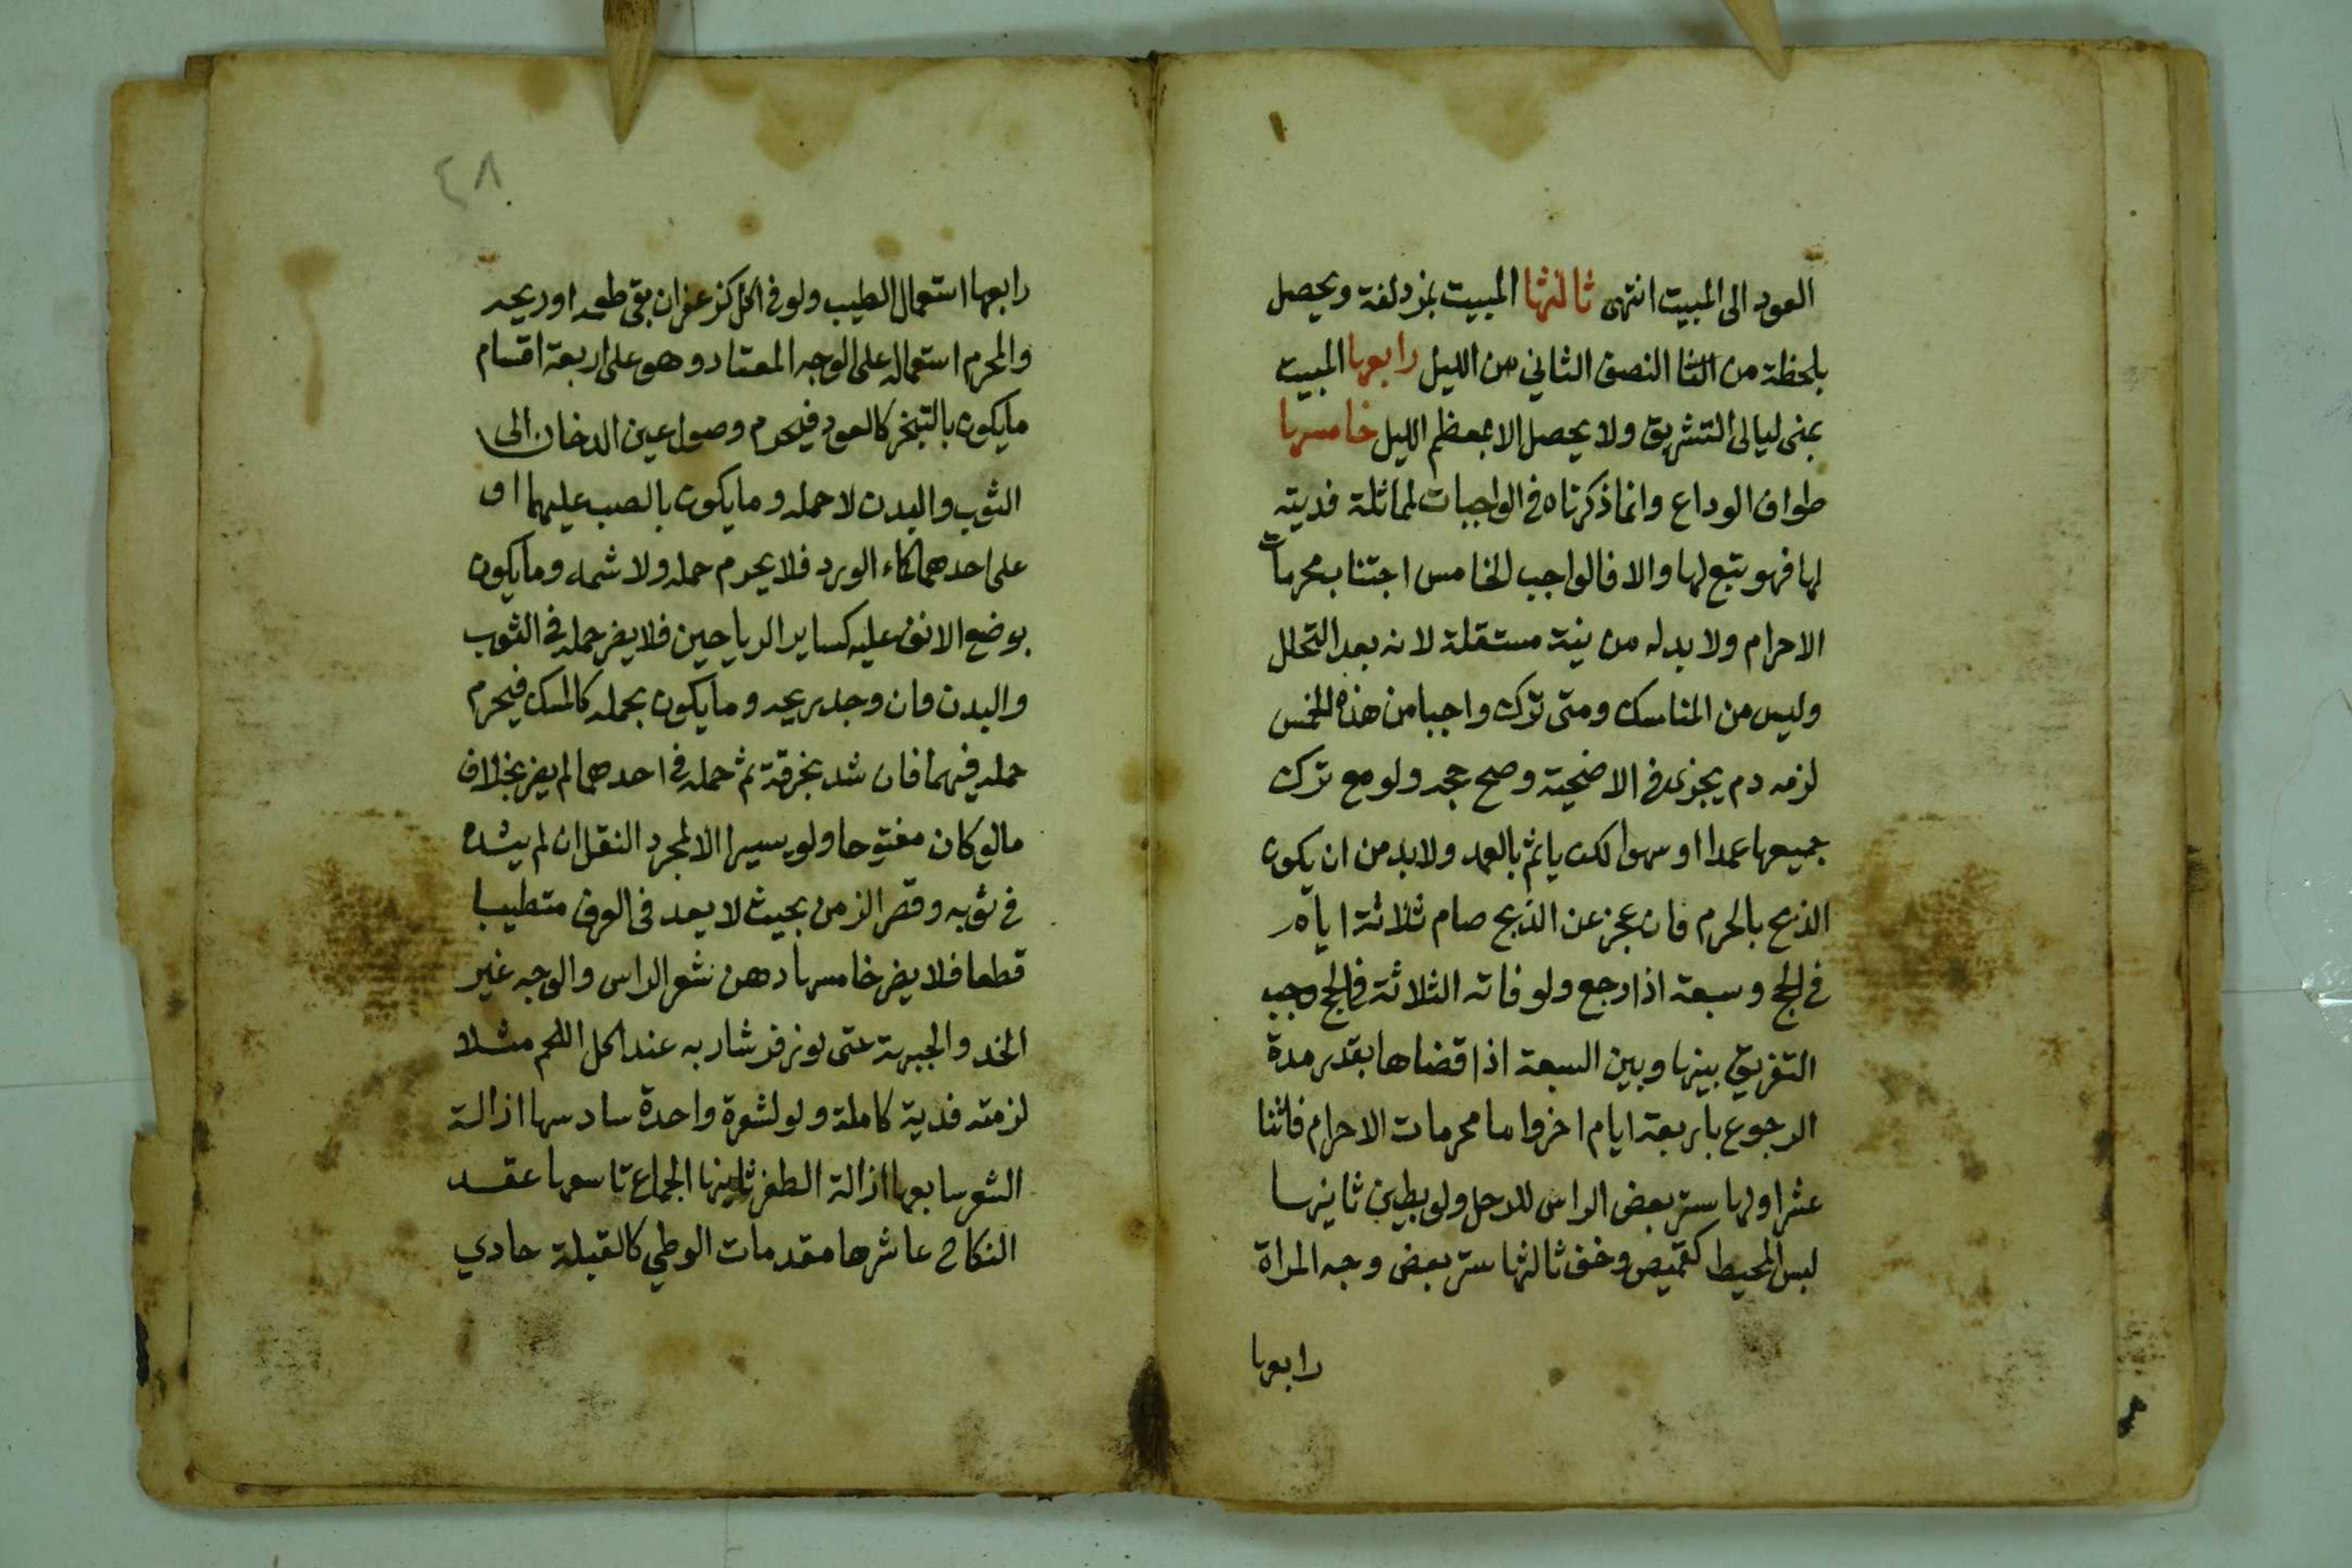 العود الى المبيت انتهى ثالثها المبيت بمزدلفة ويحصل
بلحظة من الثا النصف الثاني من الليل رابعها المبيت
بمنى ليالى التشريق ولا يحصل الا بمعظم الليل خامسها
طواف الوداع وانما ذكرناه في الواجبات لمماثلة فديته
لها فهو تبع لها والا فالواجب الخامس اجتناب محرمات
الاحرام ولا بد له من نية مستقلة لانه بعد التحلل
وليس من المناسك ومتى ترك واجبا من هذه الخمس
لزمه دم يجزى في الاضحية وصح حجه ولو مع ترك
جميعها عمدا او سهوا لكن ياثم بالعمد ولا بد من ان يكون
الذبح بالحرم فان عجز عن الذبح صام ثلاثة ايام
في الحج وسبعة اذا رجع ولو فاته الثلاثة في الحج وجب
التفريق بينها وبين السبعة اذا قضاها بقدر مدة
الرجوع باربعة ايام اخر واما محرمات الاحرام فاثنا
عشر اولها ستر بعض الراس للرجل ولو بطين ثانيها
لبس المحيط كقميص وخف ثالثها ستر بعض وجه المراة
رابعها
٤٨
رابعها استعمال الطيب ولو في اكل كزعفران بقى طعمه او ريحه
والمحرم استعماله على الوجه المعتاد وهو على اربعة اقسام
ما يكون بالتبخر كالعود فيحرم وصول عين الدخان الى
الثوب والبدن لا حمله وما يكون بالصب عليهما او
على احدهما كماء الورد فلا يحرم حمله ولا شمه وما يكون
بوضع الانف عليه كساير الرياحين فلا يضر حمله في الثوب
والبدن وان وجد ريحه وما يكون بحمله كالمسك فيحرم
حمله فيهما فان شد بخرقة ثم حمله في احدهما لم يضر بخلاف
مالو كان مفتوحا ولو يسيرا الا لمجرد النقل ان لم يشده
في ثوبه وقصر الزمن بحيث لا يعد في العرف متطيبا
قطعا فلا يضر خامسها دهن شعر الراس والوجه غير
الخد والجبهة حتى لو زفر شاربه عند اكل اللحم مثلا
لزمته فدية كاملة ولو لشعرة واحدة سادسها ازالة
الشعر سابعها ازالة الظفر ثامنها الجماع تاسعها عقد
النكاح عاشرها مقدمات الوطي كالقبلة حادي